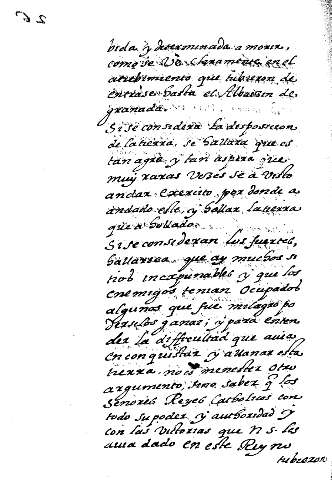 vida y determinada a morir,
como se ve claramente en el
atrebimiento que tubieron de
entrase hasta el Albaisin de
granada.
Si se considera la desposicion
de la tierra, se hallara que es
tan agra y tan aspera que
muy raras veces se a visto
andar Exercito por donde a
andado este, y hollar la tierra
que a hollado.
Si se consideran los fuertes,
hallarsea que ay muchos si
tios incxpunables y que los
enemigos tenian Ocupados
algunos que fue milagro po
derselos ganar; y para enten
der la difficultad que auia
en conquistar y allanar esta
tierra no es menester otro
argumento, sino saber q̃ los
Señores Reyes Catholicos con
todo su poder y authoridad y
con las victorias que N. S. les
auia dado en este Reyno
tubieron